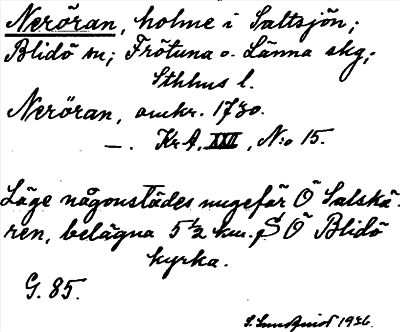 Neröran, holme i Saltsjön;
Blidö sn; Frötuna o. Länna skg;
Sthlms l.
Neröran, omkr. 1730.
—. Kr A, XXII, N:o 15.
Läge någonstädes ungefär Ö Salskä-
ren, belägna 5½ km. S Ö Blidö
kyrka.
G. 85.
1936.